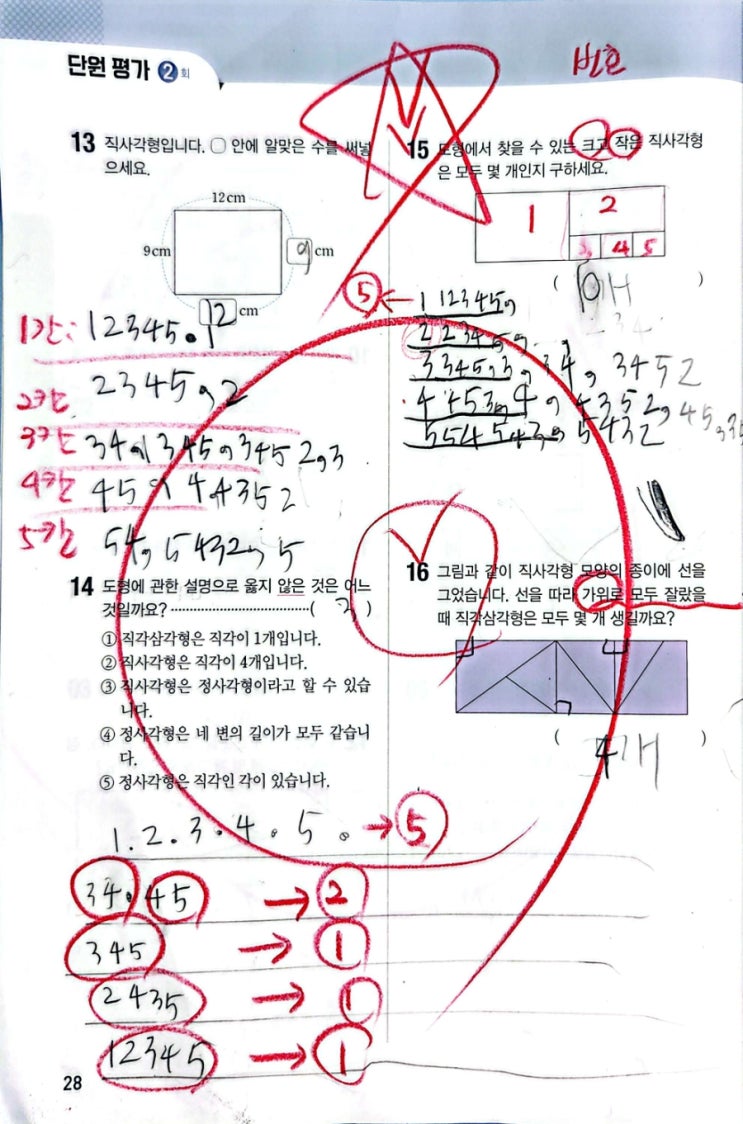 단원 평가 2회
번호
13 직사각형입니다. □ 안에 알맞은 수를 써넣
으세요.
12cm
9cm
9 cm
12 cm
1칸: 12345, 12
2칸 2345, 2
3칸 34, 1345, 3452, 3
4칸 45, 4352
5칸 54, 5432, 5
14 도형에 관한 설명으로 옳지 않은 것은 어느
것입니까? ( 3 )
① 직각삼각형은 직각이 1개입니다.
② 직사각형은 직각이 4개입니다.
③ 직사각형은 정사각형이라고 할 수 있습
니다.
④ 정사각형은 네 변의 길이가 모두 같습니
다.
⑤ 정사각형은 직각인 각이 있습니다.
15 도형에서 찾을 수 있는 크고 작은 직사각형
은 모두 몇 개인지 구하세요.
1 2
3 4 5
( 10개 )
⑤ ← 1 12345,
2 2345,
3 345, 3, 34, 3452
4 453, 4, 4352, 45, 35
5 545, 5432
16 그림과 같이 직사각형 모양의 종이에 선을
그었습니다. 선을 따라 가위로 모두 잘랐을
때 직각삼각형은 모두 몇 개 생길까요?
( 4개 )
1. 2. 3. 4. 5. → 5
34. 45 → 2
345 → 1
2435 → 1
12345 → 1
28